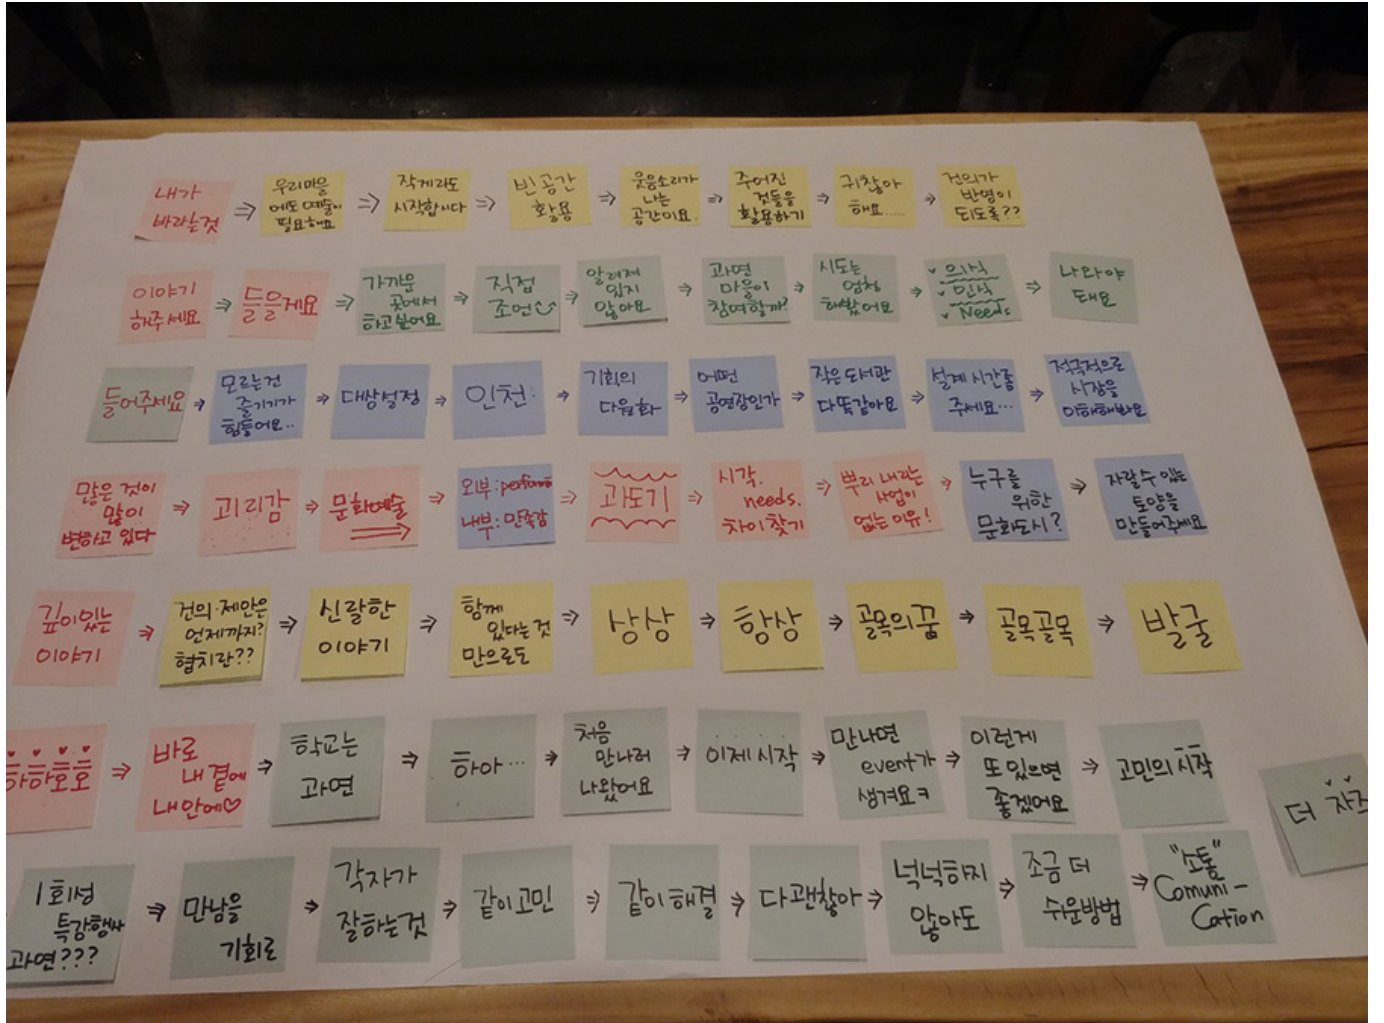 내가
바라는것
⇒
우리마을
에도 예술이
필요해요
⇒
작게라도
시작합시다
⇒
빈공간
활용
⇒
웃음소리가
나는
공간이요.
⇒
주어진
것들을
활용하기
⇒
귀찮아
해요......
⇒
건의가
반영이
되도록??
이야기
해주세요
⇒
들을게요
⇒
가까운
곳에서
하고싶어요
⇒
직접
조연
⇒
알려져
있지
않아요
⇒
과연
마을이
참여할까?
⇒
시도는
엄청
해봤어요
⇒
✓ 의식
✓ 인식
✓ Needs
⇒
나와야
돼요
들어주세요
⇒
모르는건
즐기기가
힘들어요..
⇒
대상설정
⇒
인천:
⇒
기회의
다원화
⇒
어떤
공연장인가
⇒
작은도서관
다똑같아요
⇒
설계 시간좀
주세요...
⇒
적극적으로
시장을
이해해봐요
많은 것이
많이
변하고 있다
⇒
괴리감
⇒
문화예술
⇒
외부:
내부: 만족감
⇒
과도기
⇒
시각.
needs.
차이찾기
⇒
뿌리 내리는
사업이
없는 이유!
⇒
누구를
위한
문화도시?
⇒
자랄수 있는
토양을
만들어주세요
깊이있는
이야기
⇒
건의·제안은
언제까지?
협치란??
⇒
신랄한
이야기
⇒
함께
있다는 것
만으로도
⇒
상상
⇒
항상
⇒
골목의꿈
⇒
골목골목
⇒
발굴
하하호호
⇒
바로
내 곁에
내 안에♡
⇒
학교는
과연
⇒
하아...
⇒
처음
만나러
나왔어요
⇒
이제시작
⇒
만나면
event가
생겨요ㅋ
⇒
이런게
또 있으면
좋겠어요
⇒
고민의 시작
더 자주
1회성
특강행사
과연???
⇒
만남을
기회로
⇒
각자가
잘하는것
⇒
같이고민
⇒
같이해결
⇒
다괜찮아
⇒
넉넉하지
않아도
⇒
조금 더
쉬운방법
⇒
"소통"
Comuni-
Cation